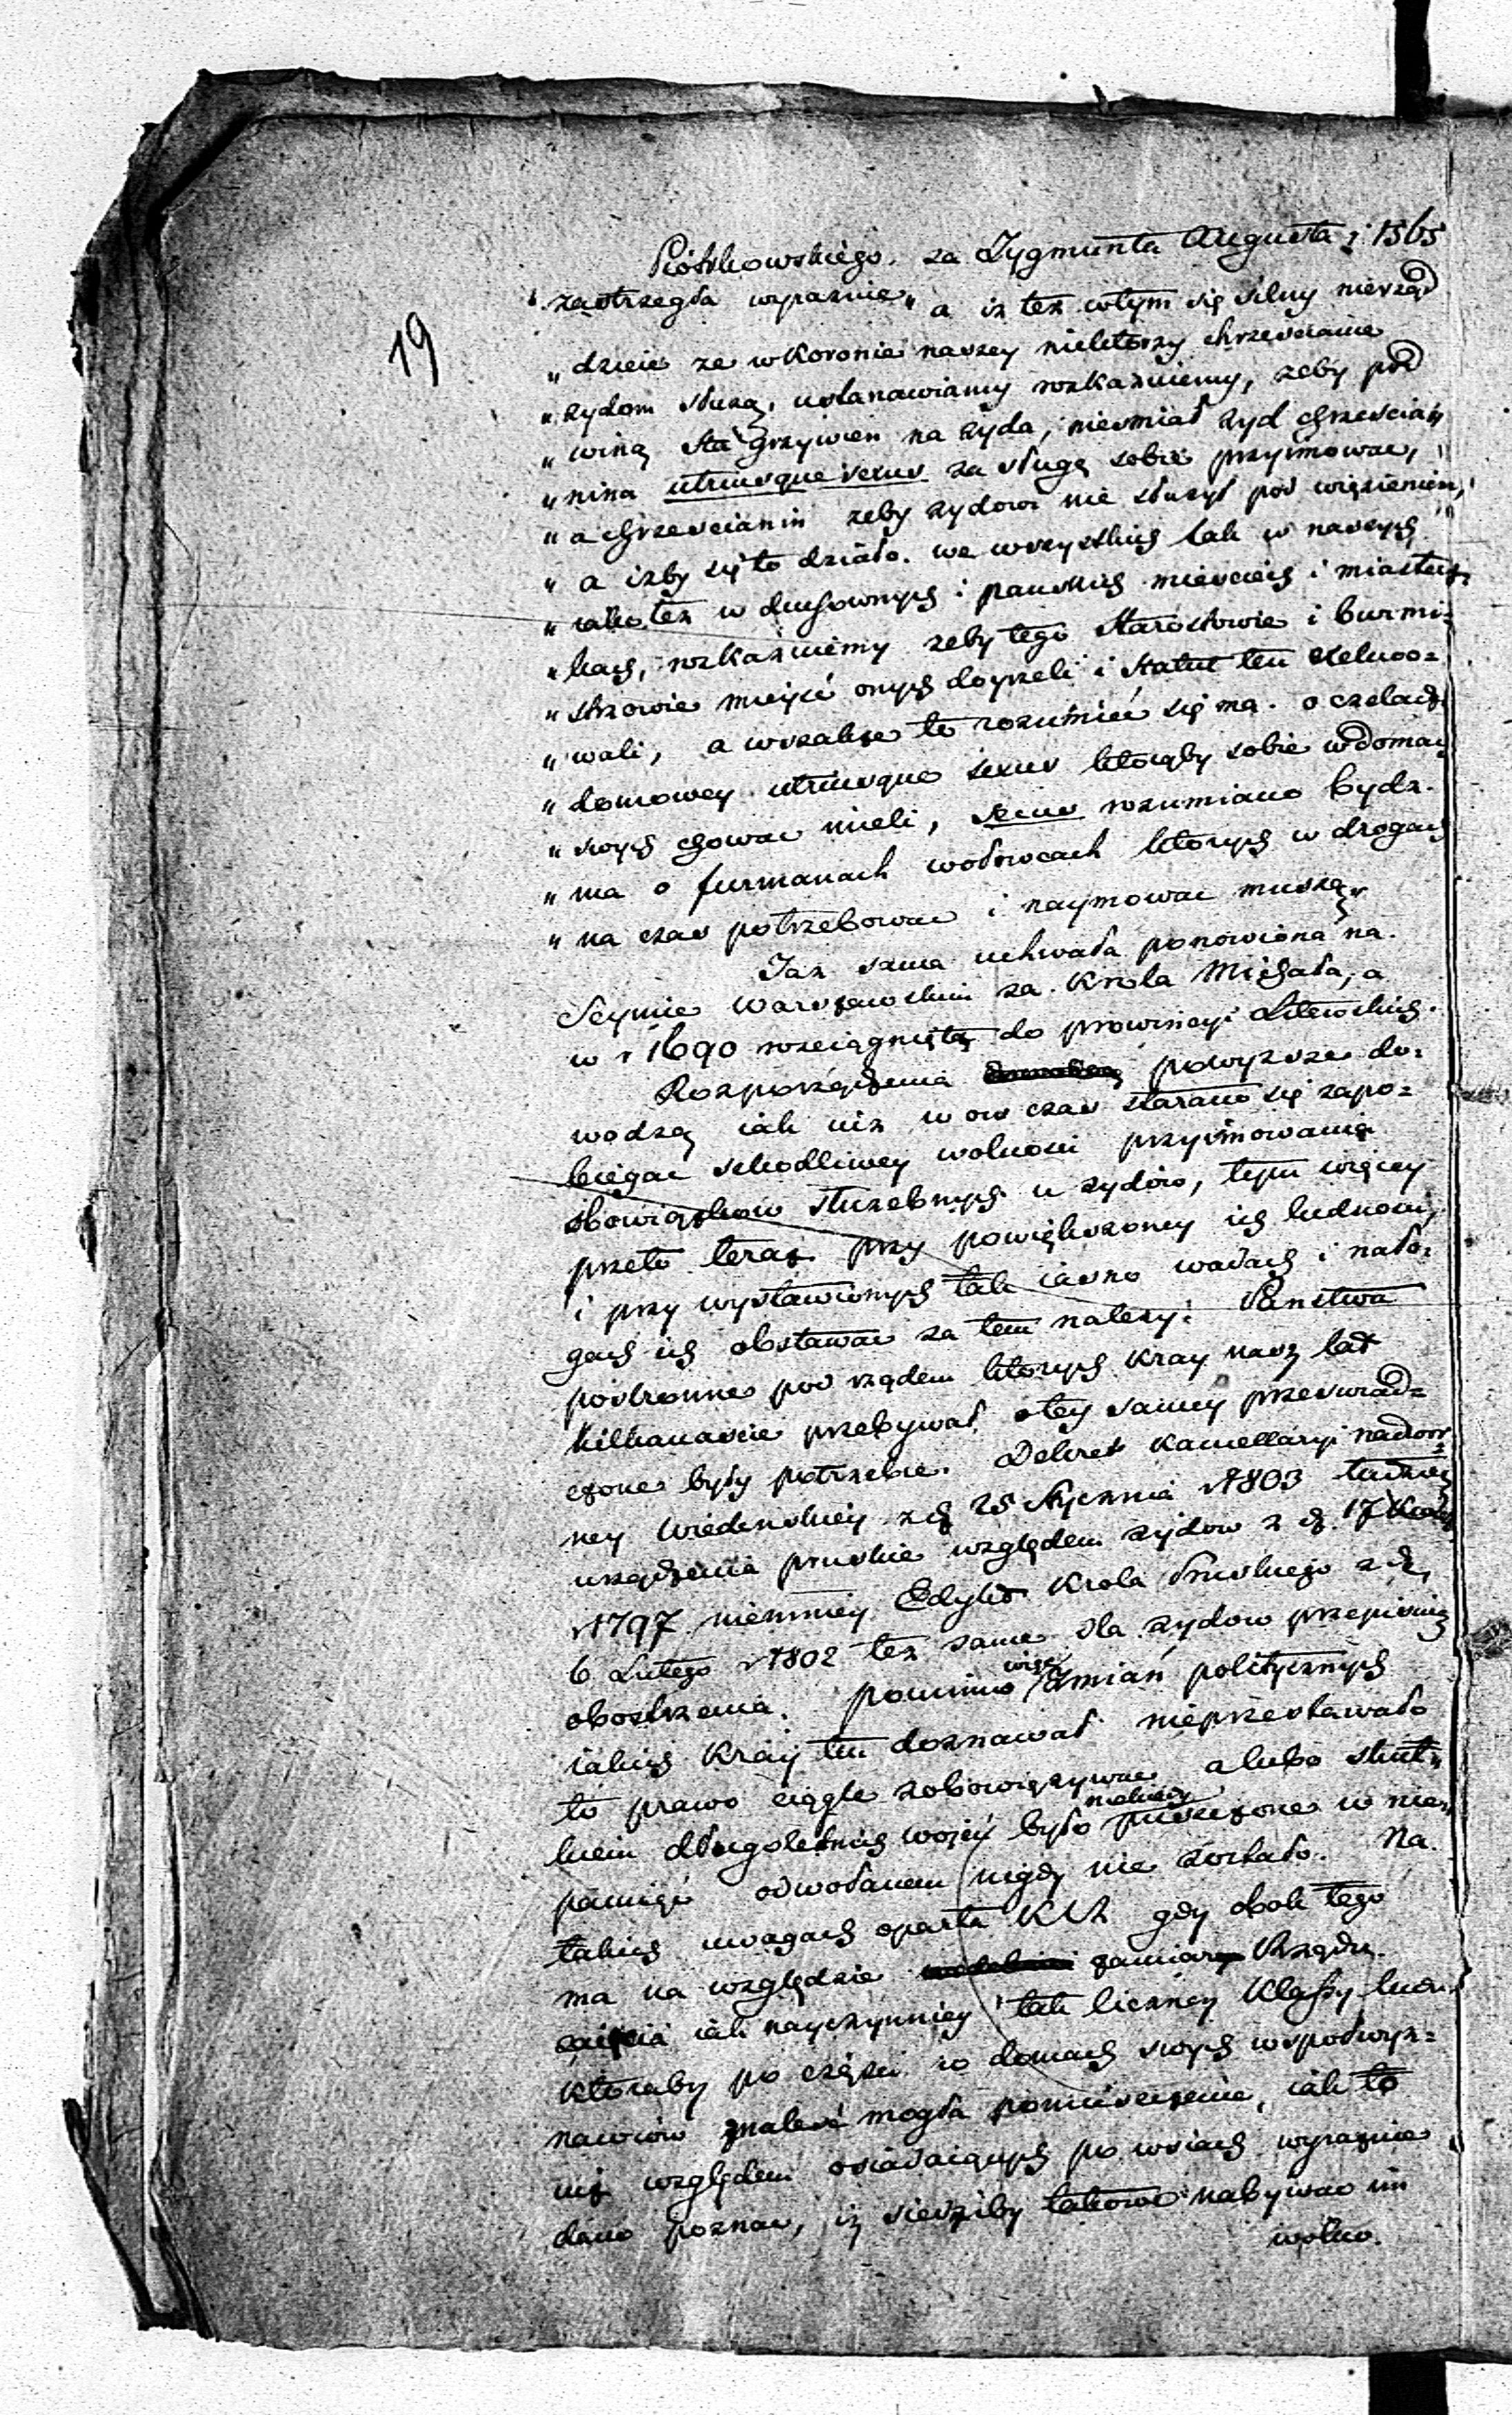 19
Piotrkowskiego, za Zygmunta Augusta r 1565
zastrzegła wyraznie „ a iz tez wtym się silny nierząd
„ dzieie ze w Koronie naszey niektorzy chrzescianie
„ zydom słuzą, ustanawiamy rozkazuiemy, zeby pod
„ winą sta grzywien na zyda, niesmiał zyd chrzescia„
„ nina utriusque sexus za sługę sobie przyimowac,
„ a chrzescianin zeby zydowi nie słuzył pod więzieniem,
„ a izby się to działo. we wszystkich tak w naszych
„ iako tez w duchownych i panskich miescich i miastecz„
„ kach, rozkazuiemy zeby tego Starostowie i burmi„
„ strzowie mieysc onych doyrzeli i Statut ten exekwo„
„ wali, a wszakze to rozumieć się ma. o czeladzi
„ domowey utriusque sexus ktorąby sobie w domach
„ swych chowac mieli, secus rozumiano bydz.
„ ma o furmanach wodowcach ktorych w drogach
„ na czas potrzebowac i naymowac muszą„
Taz sama uchwała ponowiona na.
Seymie warszawskim za Krola Michała, a
w r 1690 rozciągniętą do prowincyi Litewskich.
Rozporządzenia powyzsze do„
wodzą iak iuz w ow czas starano się zapo„
biegac szkodliwey wolnosci przyimowania
obowiązkow słuzebnych u zydow, tym więcey
przeto teraz przy powiększoney ich ludnosci,
i przy wystawionych tak iasno wadach i nało„
gach ich obstawac za tem nalezy: Panstwa
postronne pod rządem ktorych Kray nasz lat
kilkanascie przebywał o tey samey przeswiad„
czone były potrzebie. Dekret Kancellaryi nadwor„
ney Wiedenskiey z d. 25 Stycznia r 1803 tudziez
urządzenia pruskie względem zydow z d. 17 Kwiet
r 1797 niemniey Edykt Krola Pruskiego z d.
6 Lutego r 1802 tez same dla zydow przepisuią
obostrzenia. pomimo więc zmian politycznych
iakich Kray ten doznawał nieprzestawało
to prawo ciągle zobowiązywac a lubo skut„
kiem długoletnich woien było niekiedy puszczone w nie„
pamięć odwołanem nigdy nie zostało. Na.
takich uwagach oparta gdy obok tego
ma na względzie zamiary Rządu.
zaięcia iak nayczynniey tak liczney Klassy ludu
ktoraby po częsci w domach swych wspołwyz„
nawcow znaleść mogła pomieszczenie, iak to
iuz względem osiadaiących po wsiach wyraznie
dano poznac, iz siedziby takowe nabywac im
wolno.